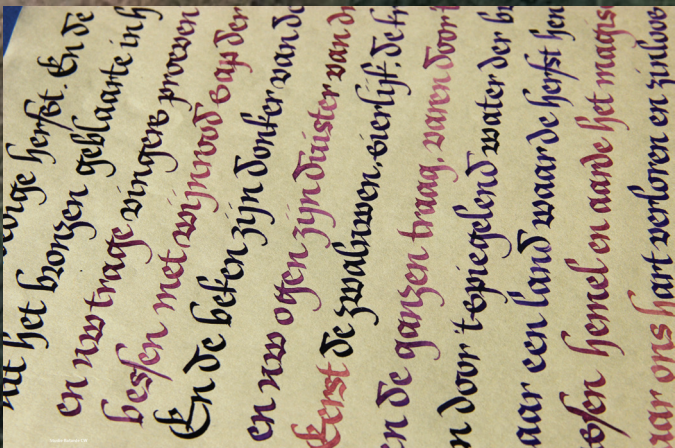 herfst. En de
uit het bronzen geblaarte in h
en uw trage vingers proeven
bessen met wijnrood sap der
En de beken zijn donker van de
en uw ogen zijn duister van
Eerst de zwaluwen, sierlijk. de
en de ganzen traag, varen door
en door 't spiegelend water der
naar een land waar de herfst hen
hemel en aarde het magis
naar ons hart verloren en zinloos